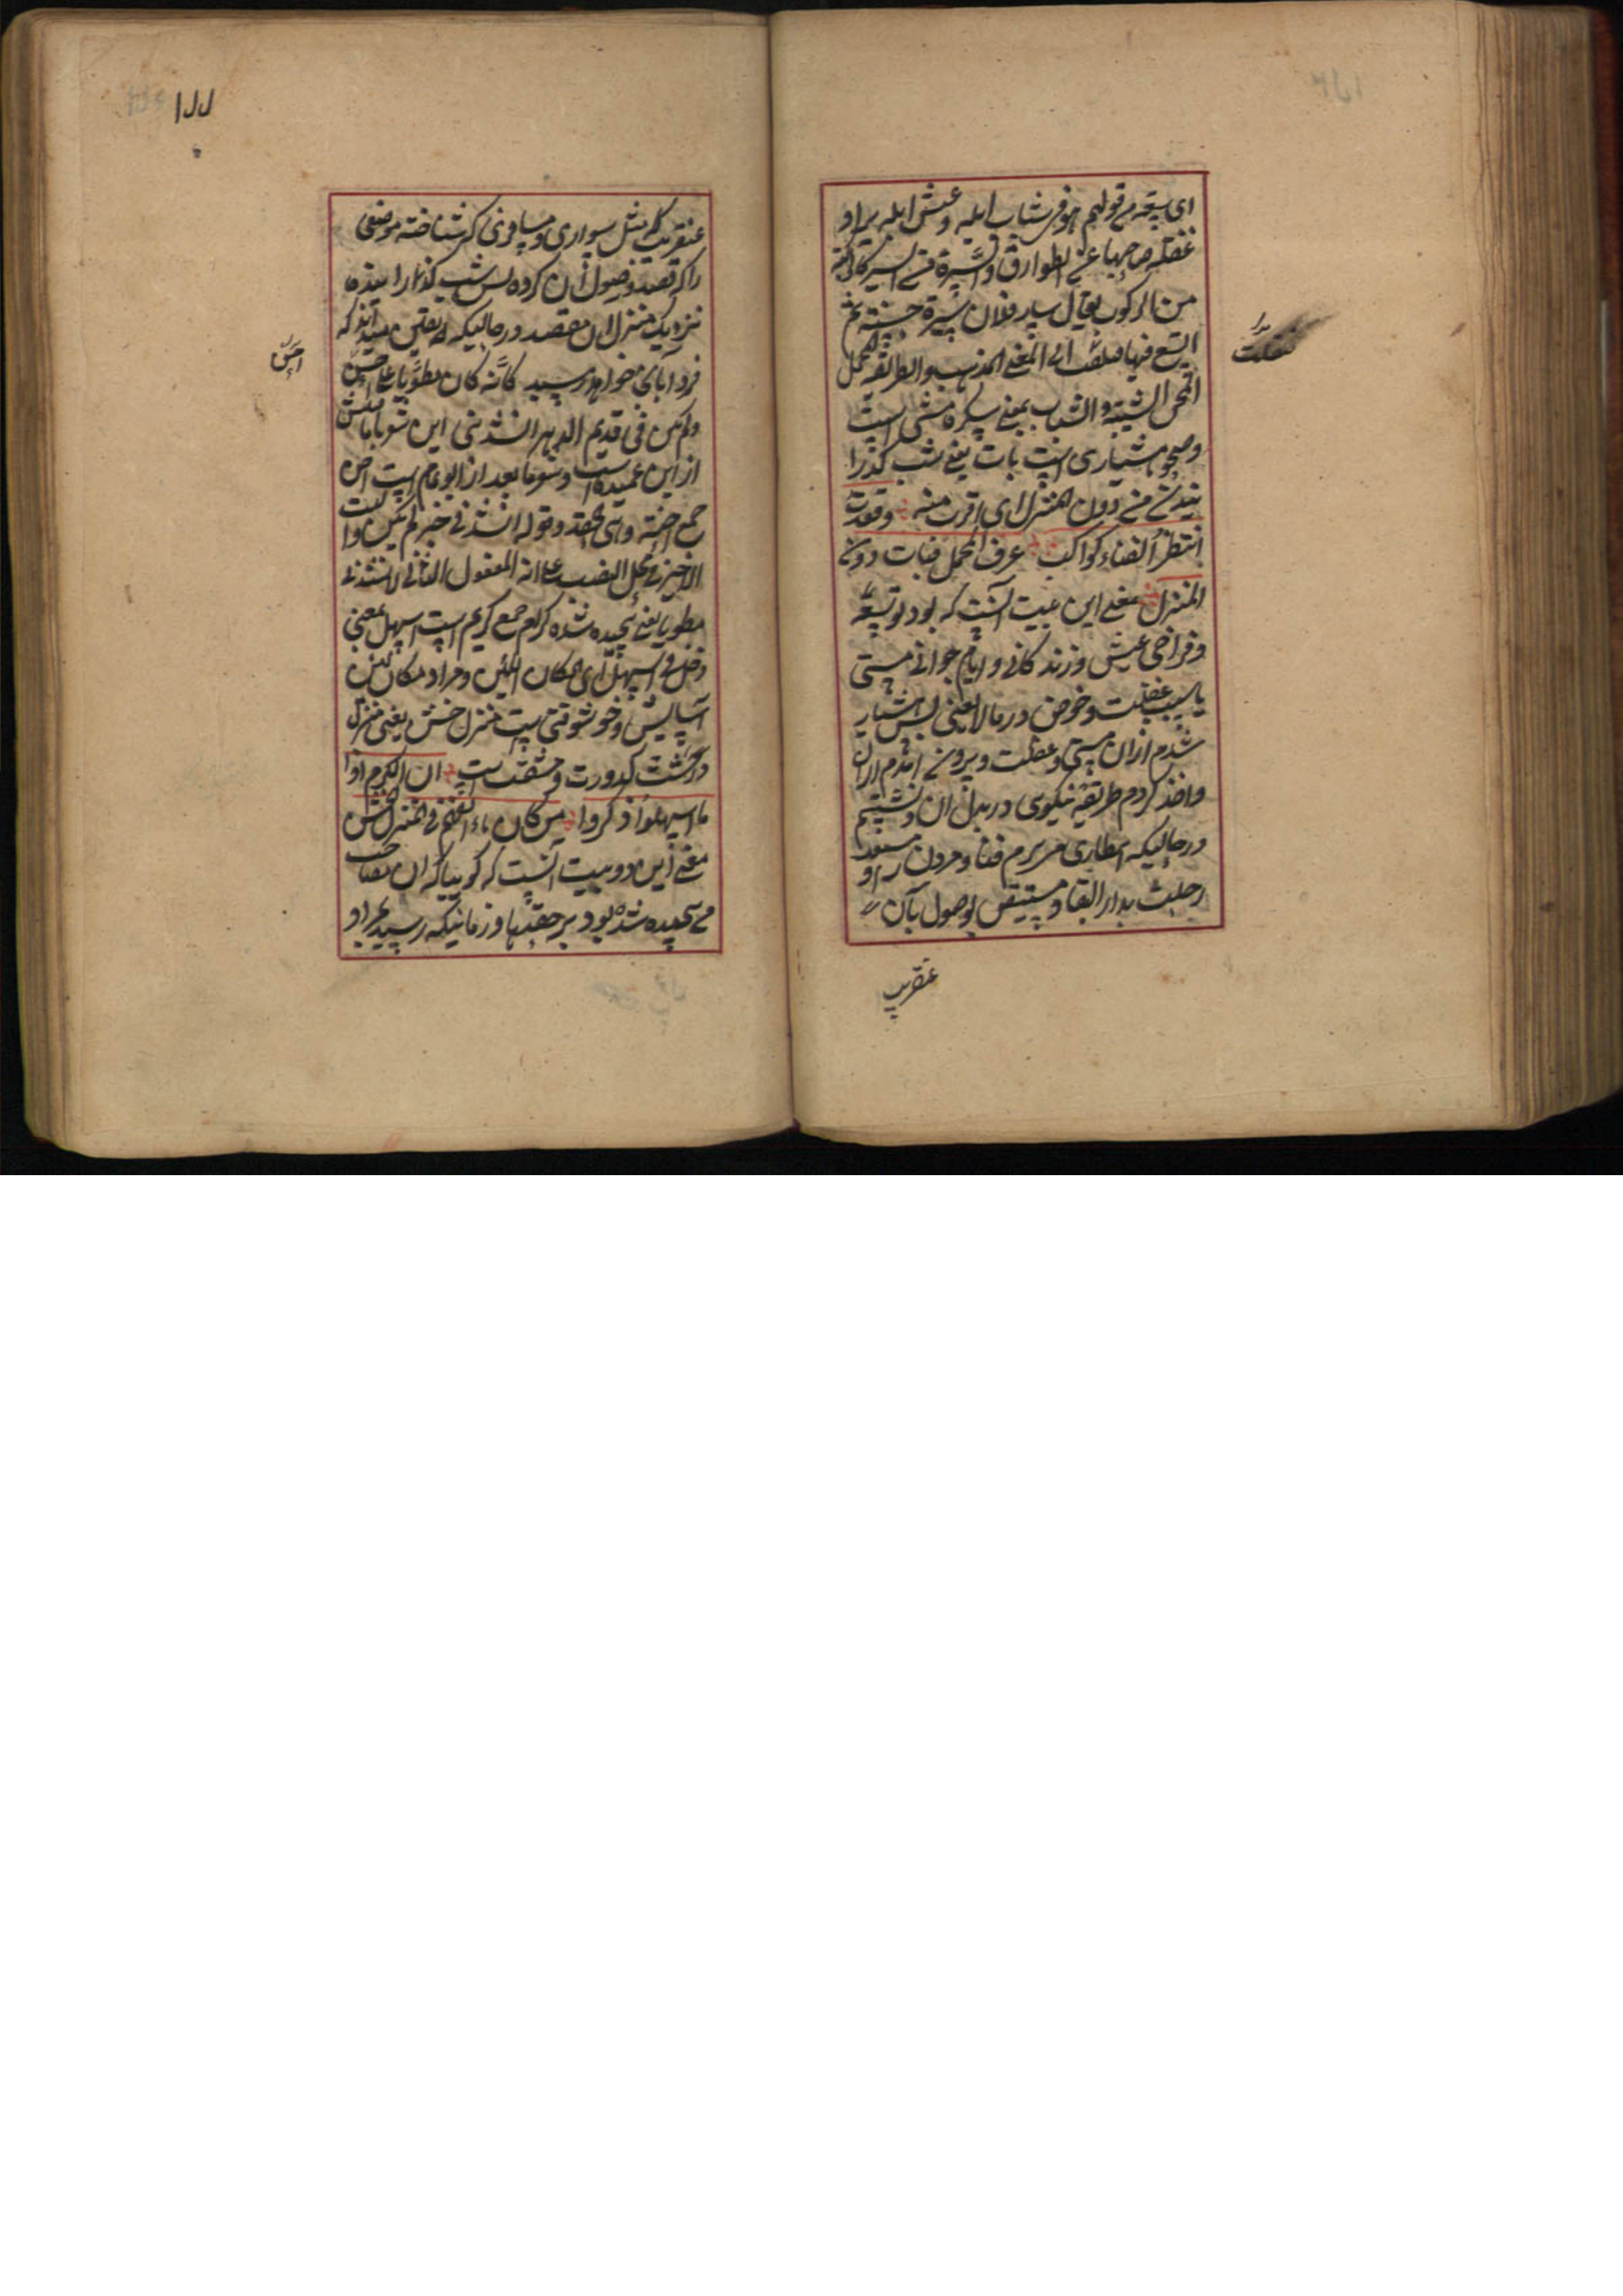 ای سعة من قولهم هو فی شباب ابله و عیش ابله یراد
غفلة صاحبها عن الطوارق والسیرة من السیر کالرکبة
من الرکوب یقال سار فلان سیرة حسنة ثم
اتسع فیها فنقلت الی المعنی المذهب والطریقة
السکر مستی است
وصحو هشیاری است بات یعنی شب گذرا
نیدن من دون المنزل ای اقرب منه وقعدت
انتظر الفناء کراکب عرف المحل فبات دون
المنزل معنی این بیت آنست که بود توسعه
و فراخی عیش و زندگانی و ایام جوانی مستی
یا سبب غفلت و خوض در مالایعنی پس هشیار
شدم ازان مستی و غفلت و بیرون آمدم ازان
واخذ کردم طریقه نیکوی در بدل آن و نشستم
درحالیکه انتظاری میبرم فنا و مردن را و مستعد
رحلت بدار البقا و مستیقن بوصول بآن
عنقریب
نقلت
١١١
عنقریب که مثل سواری و مسافری که شناخته موضعی
را که قصد وصول آن کرده پس شب گذارانیده
نزدیک منزل آن مقصد درحالیکه بیقین میداند که
فردا بآن خواهد رسید کانه کان مطویا علی احن
ولم یکن فی قدیم الدهر انشدنی این شعر با ماقبلش
از ابن عمید است و شعر مابعد از ابو تمام است احن
جمع احنة وهی الحقد وقوله انشدنی خبر لم یکن و البیت
الاخیر فی محل النصب علی انه المفعول الثانی لانشدنی
مطویا یعنی پیچیده شده کرام جمع کریم است اسهل یعنی
دخل فی السهل ای المکان اللین و مراد مکان لین
آسایش و خوشوقتی است منزل خشن یعنی منزل
درشت کدورت و مشقت است ان الکرام اذا
ما اسهلوا ذکروا من کان یألفهم فی المنزل الخشن
معنی این دو بیت آنست که گوییا که آن مصاحب
من پیچیده شده بود بر حقدها و زمانیکه رسید بمراد
احن